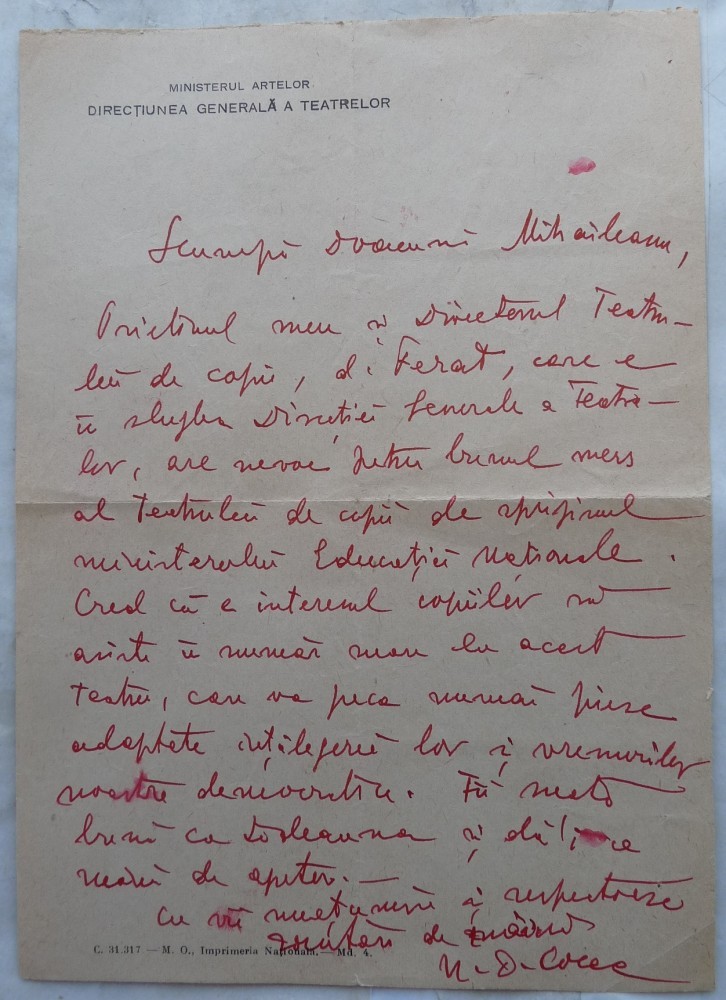 MINISTERUL ARTELOR
DIRECȚIUNEA GENERALĂ A TEATRELOR
Scumpă Doamnă Mihăileanu,
Prietenul meu și Directorul Teatru-
lui de copii, d. Ferat, care e
în slujba Direcției Generale a Teatre-
lor, are nevoe pentru bunul mers
al Teatrului de copii de sprijinul
ministerului Educației Naționale.
Cred că e interesul copiilor să
asiste în număr mare la acest
teatru, care va juca numai piese
adaptate înțelegerii lor și vremurilor
noastre democratice. Fii
bună ca totdeauna și dă-i ce
de ajutor. —
Cu vii mulțumiri și respectoase
de mână
N. D. Cocea
C. 31.317. — M. O., Imprimeria Națională, — Md. 4.